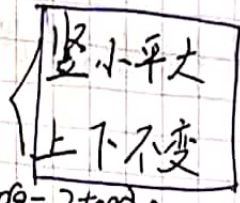 竖小平大
上下不变